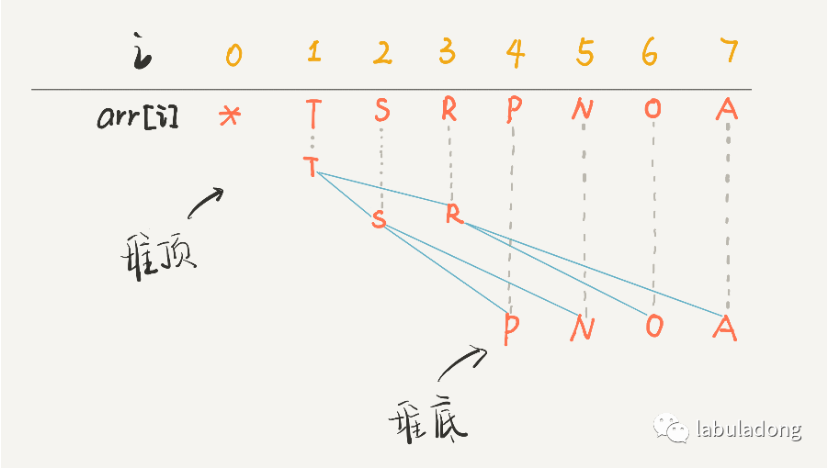 i 0 1 2 3 4 5 6 7
arr[i] * T S R P N O A
T
S R
堆顶
P N O A
堆底
labuladong